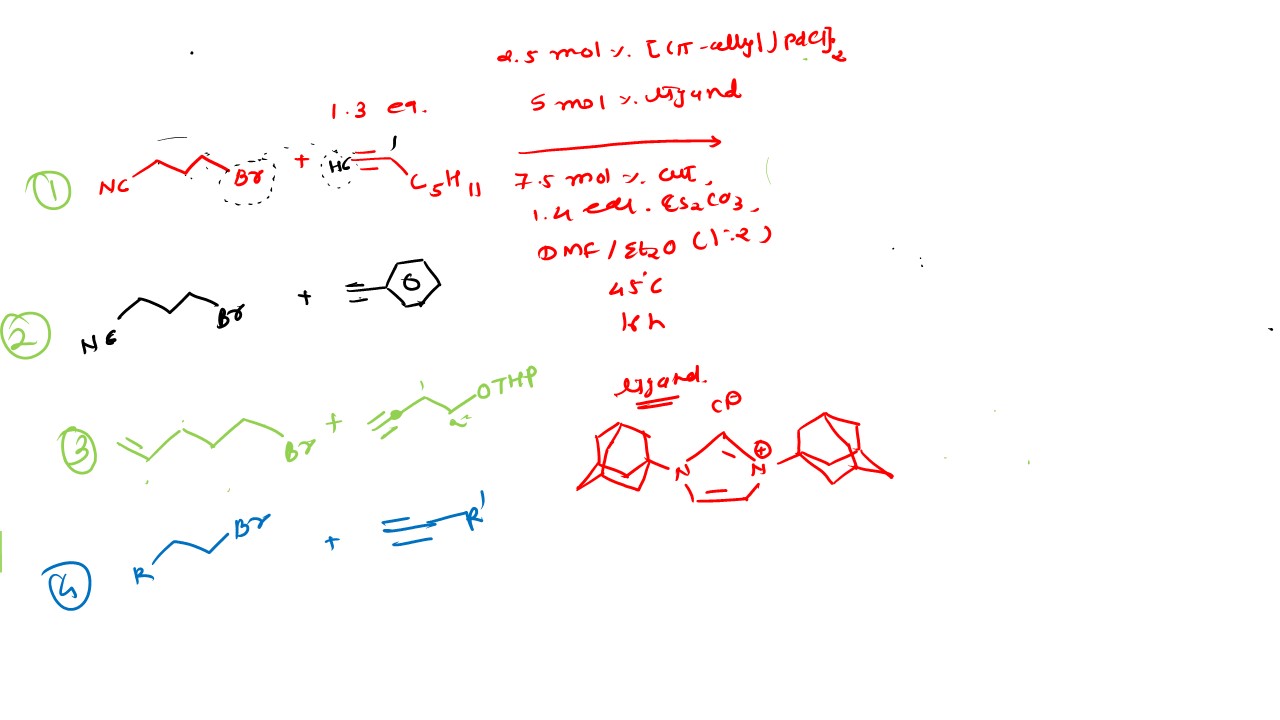 2.5 mol %. [(π-allyl) PdCl]2
1.3 eq.
5 mol %. ligand
① NC Br + HC C5H11
7.5 mol %. CuI,
1.4 Cs2CO3,
DMF / Et2O (1:2)
45°C
② NC Br +
16 h
③ Br + OTHP
ligand.
Cl⊖
N N ⊕
④ R Br + R'